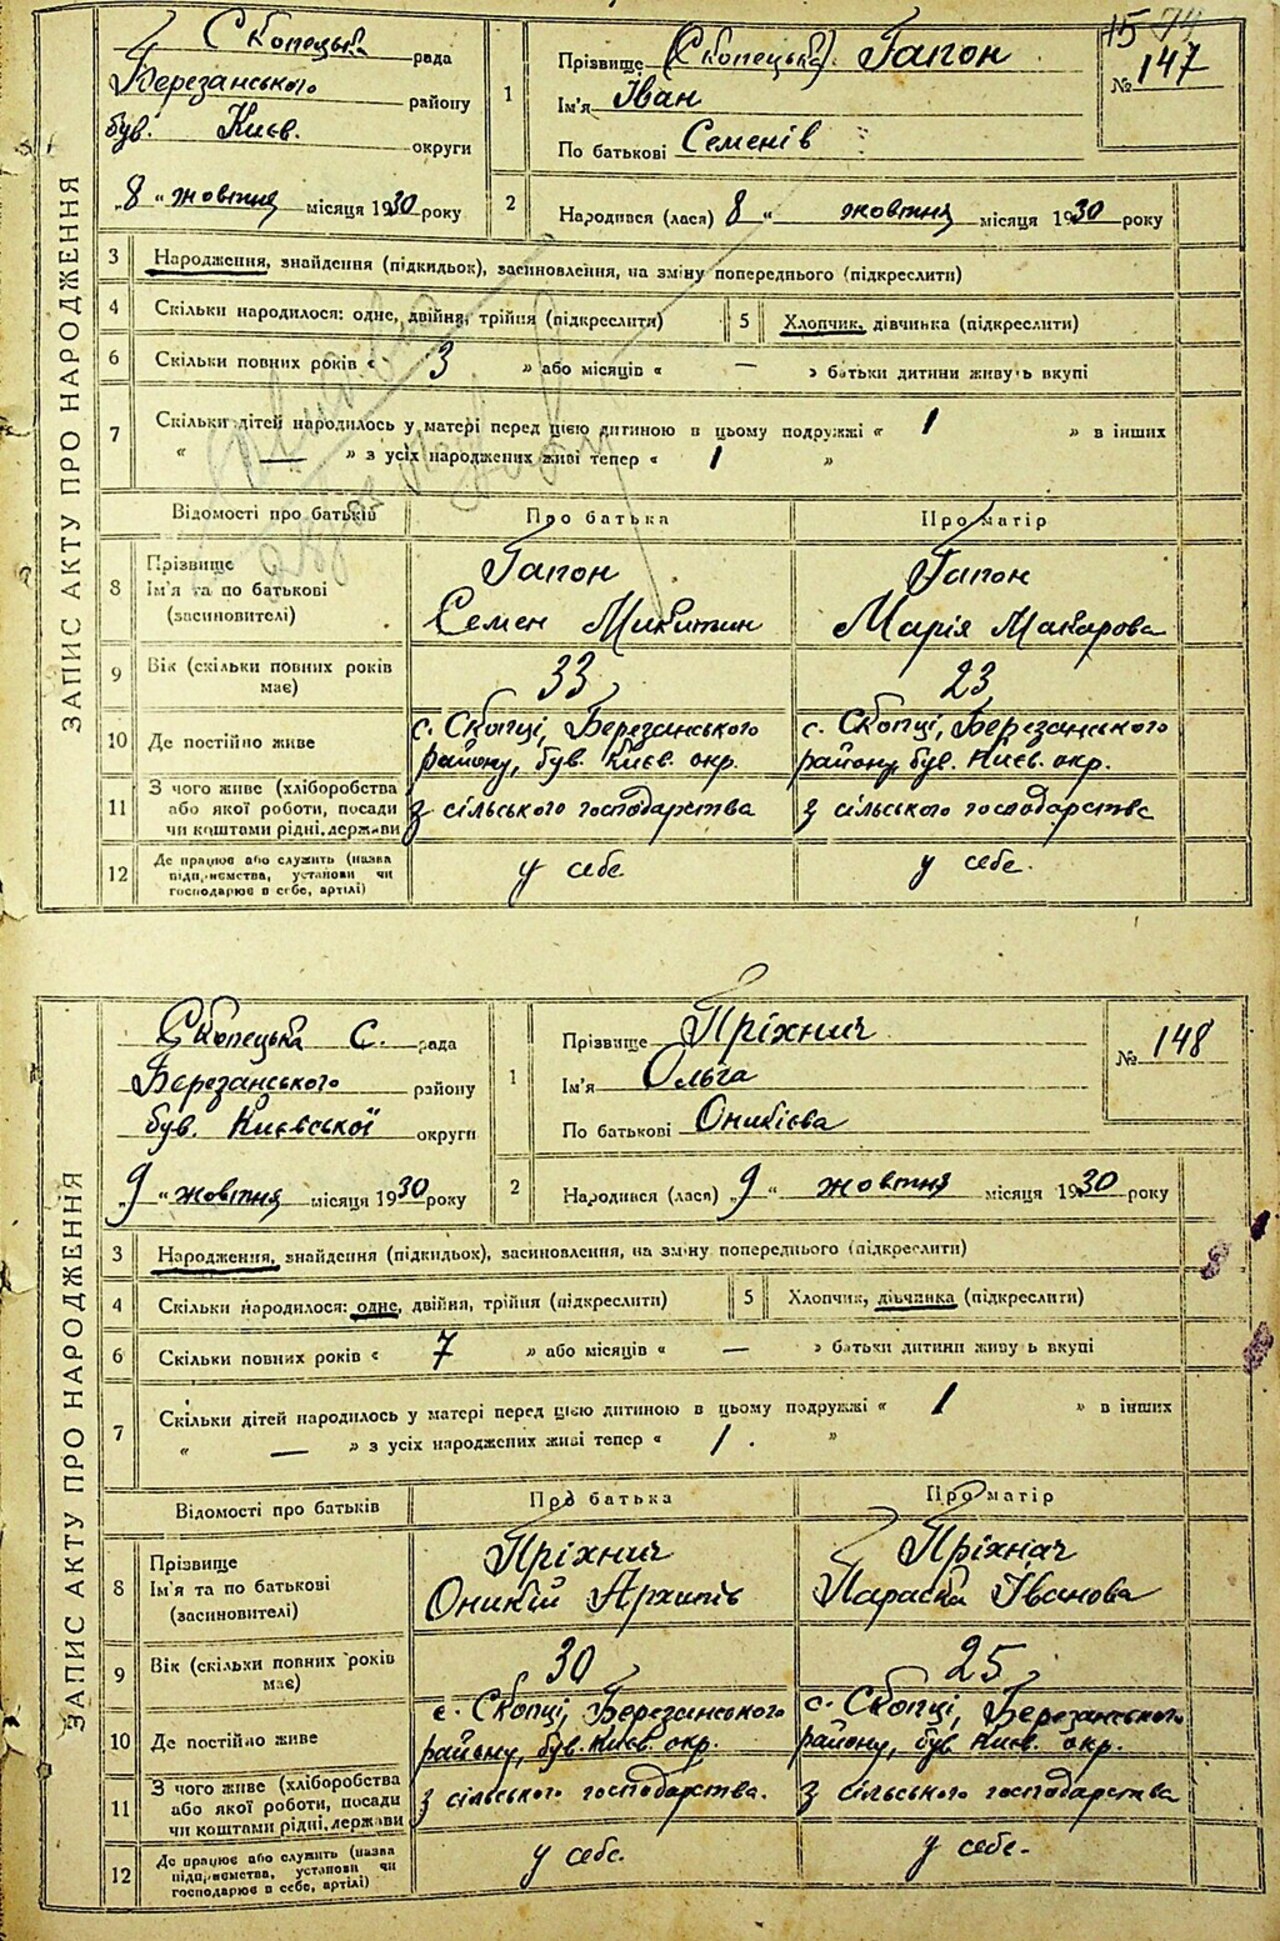 15 74
ЗАПИС АКТУ ПРО НАРОДЖЕННЯ
Скопецька рада
Березанського району
був. Києв. округи
„8“ жовтня місяця 1930 року
1
Прізвище (Скопецька) Гапон
Ім'я Іван
По батькові Семенів
№ 147
2 Народився (лася) 8 “ жовтня місяця 1930 року
3 Народження, знайдення (підкидьок), засиновлення, на зміну попереднього (підкреслити)
4 Скільки народилося: одне, двійня, трійня (підкреслити) 5 Хлопчик, дівчинка (підкреслити)
6 Скільки повних років « 3 » або місяців « — » батьки дитини живуть вкупі
7 Скільки дітей народилось у матері перед цією дитиною в цьому подружжі « 1 » в інших
« — » з усіх народжених живі тепер « 1 »
Відомості про батьків Про батька Про матір
8 Прізвище Ім'я та по батькові (засиновителі)
Гапон Гапон
Семен Микитин Марія Макарова
9 Вік (скільки повних років має) 33 23
10 Де постійно живе
с. Скопці, Березанського с. Скопці, Березанського
району, був. Києв. окр. району, був. Києв. окр.
11 З чого живе (хліборобства або якої роботи, посади чи коштами рідні, держави
з сільського господарства з сільського господарства
12 Де працює або служить (назва підприємства, установи чи господарює в себе, артілі)
у себе. у себе.
ЗАПИС АКТУ ПРО НАРОДЖЕННЯ
Скопецька с. рада
Березанського району
був. Києвської округи
„9“ жовтня місяця 1930 року
1
Прізвище Пріхнич
Ім'я Ольга
По батькові Оникієва
№ 148
2 Народився (лася) „9“ жовтня місяця 1930 року
3 Народження, знайдення (підкидьок), засиновлення, на зміну попереднього (підкреслити)
4 Скільки народилося: одне, двійня, трійня (підкреслити) 5 Хлопчик, дівчинка (підкреслити)
6 Скільки повних років « 7 » або місяців « — » батьки дитини живуть вкупі
7 Скільки дітей народилось у матері перед цією дитиною в цьому подружжі « 1 » в інших
« — » з усіх народжених живі тепер « 1. »
Відомості про батьків Про батька Про матір
8 Прізвище Ім'я та по батькові (засиновителі)
Пріхнич Пріхнач
Оникій Архипів Параска Іванова
9 Вік (скільки повних років має) 30 25
10 Де постійно живе
с. Скопці, Березанського с. Скопці, Березанського
району, був. Києв. окр. району, був. Києв. окр.
11 З чого живе (хліборобства або якої роботи, посади чи коштами рідні, держави
з сільського господарства. з сільського господарства
12 Де працює або служить (назва підприємства, установи чи господарює в себе, артілі)
у себе. у себе.